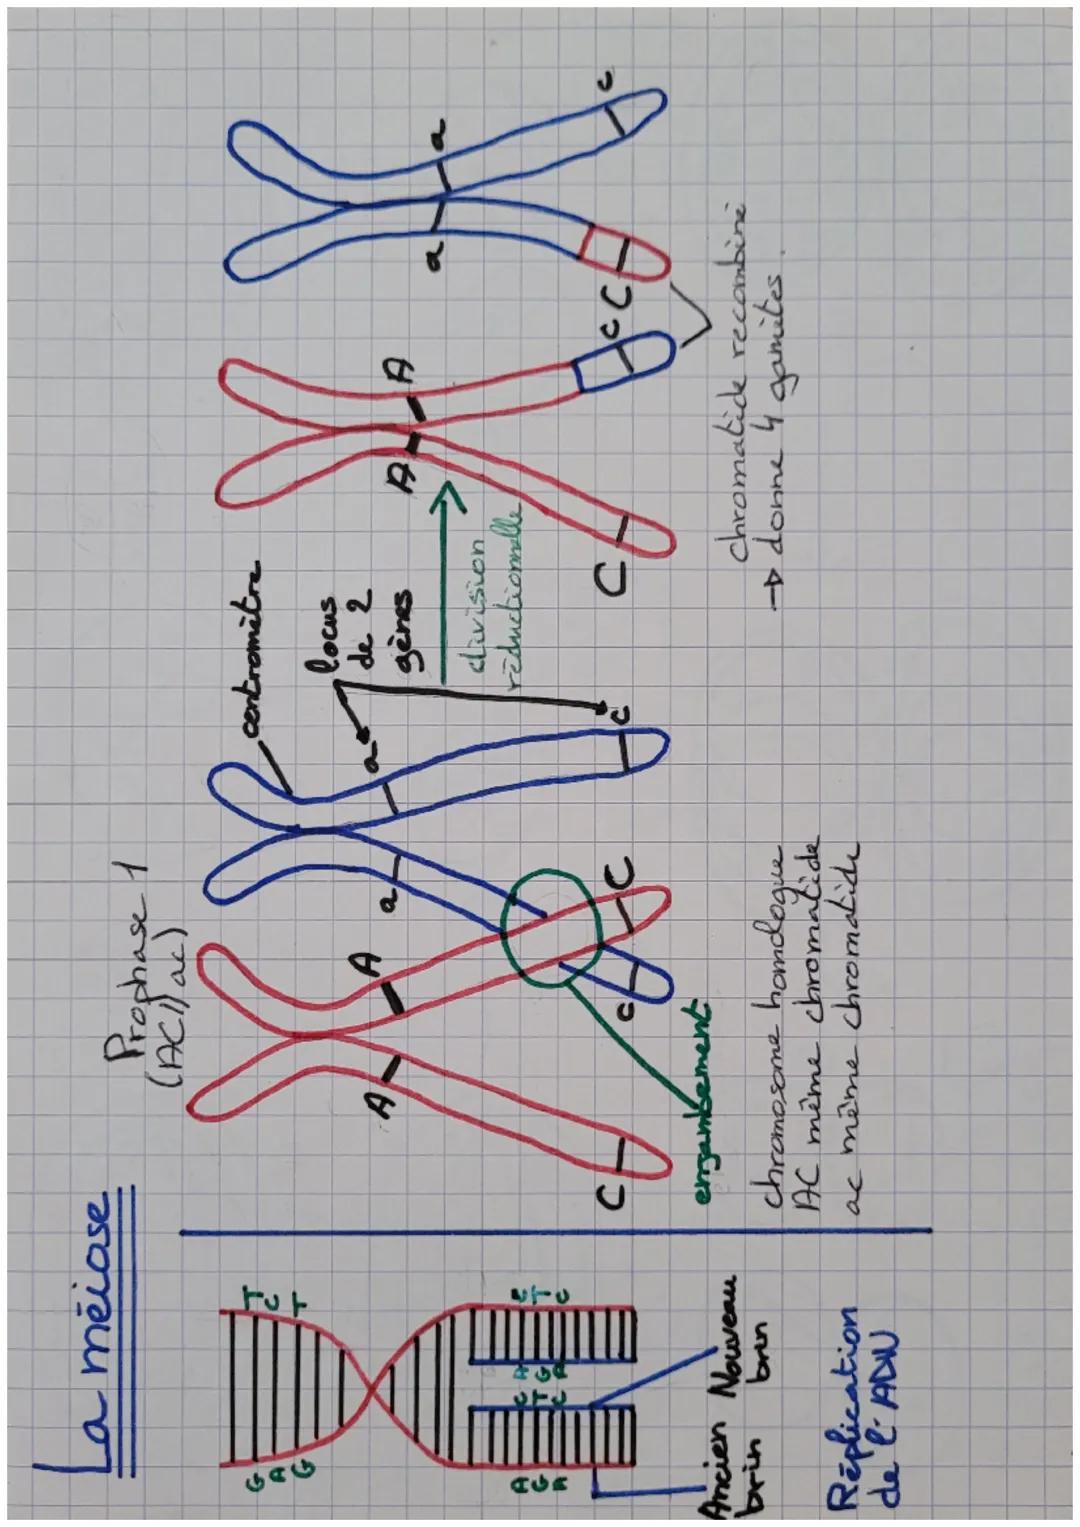 La méiose
G T
A C
G T
A C A C
G T G T
A C A C
Ancien
brin
Nouveau
brin
Réplication
de l'ADN
Prophase 1
(AC//ac)
A A a a
C c C c
centromètre
locus
de 2
gènes
enjambement
chromosome homologue
AC même chromatide
ac même chromatide
division
réductionnelle
A A a a
C c C c
chromatide recombiné
→ donne 4 gamètes.